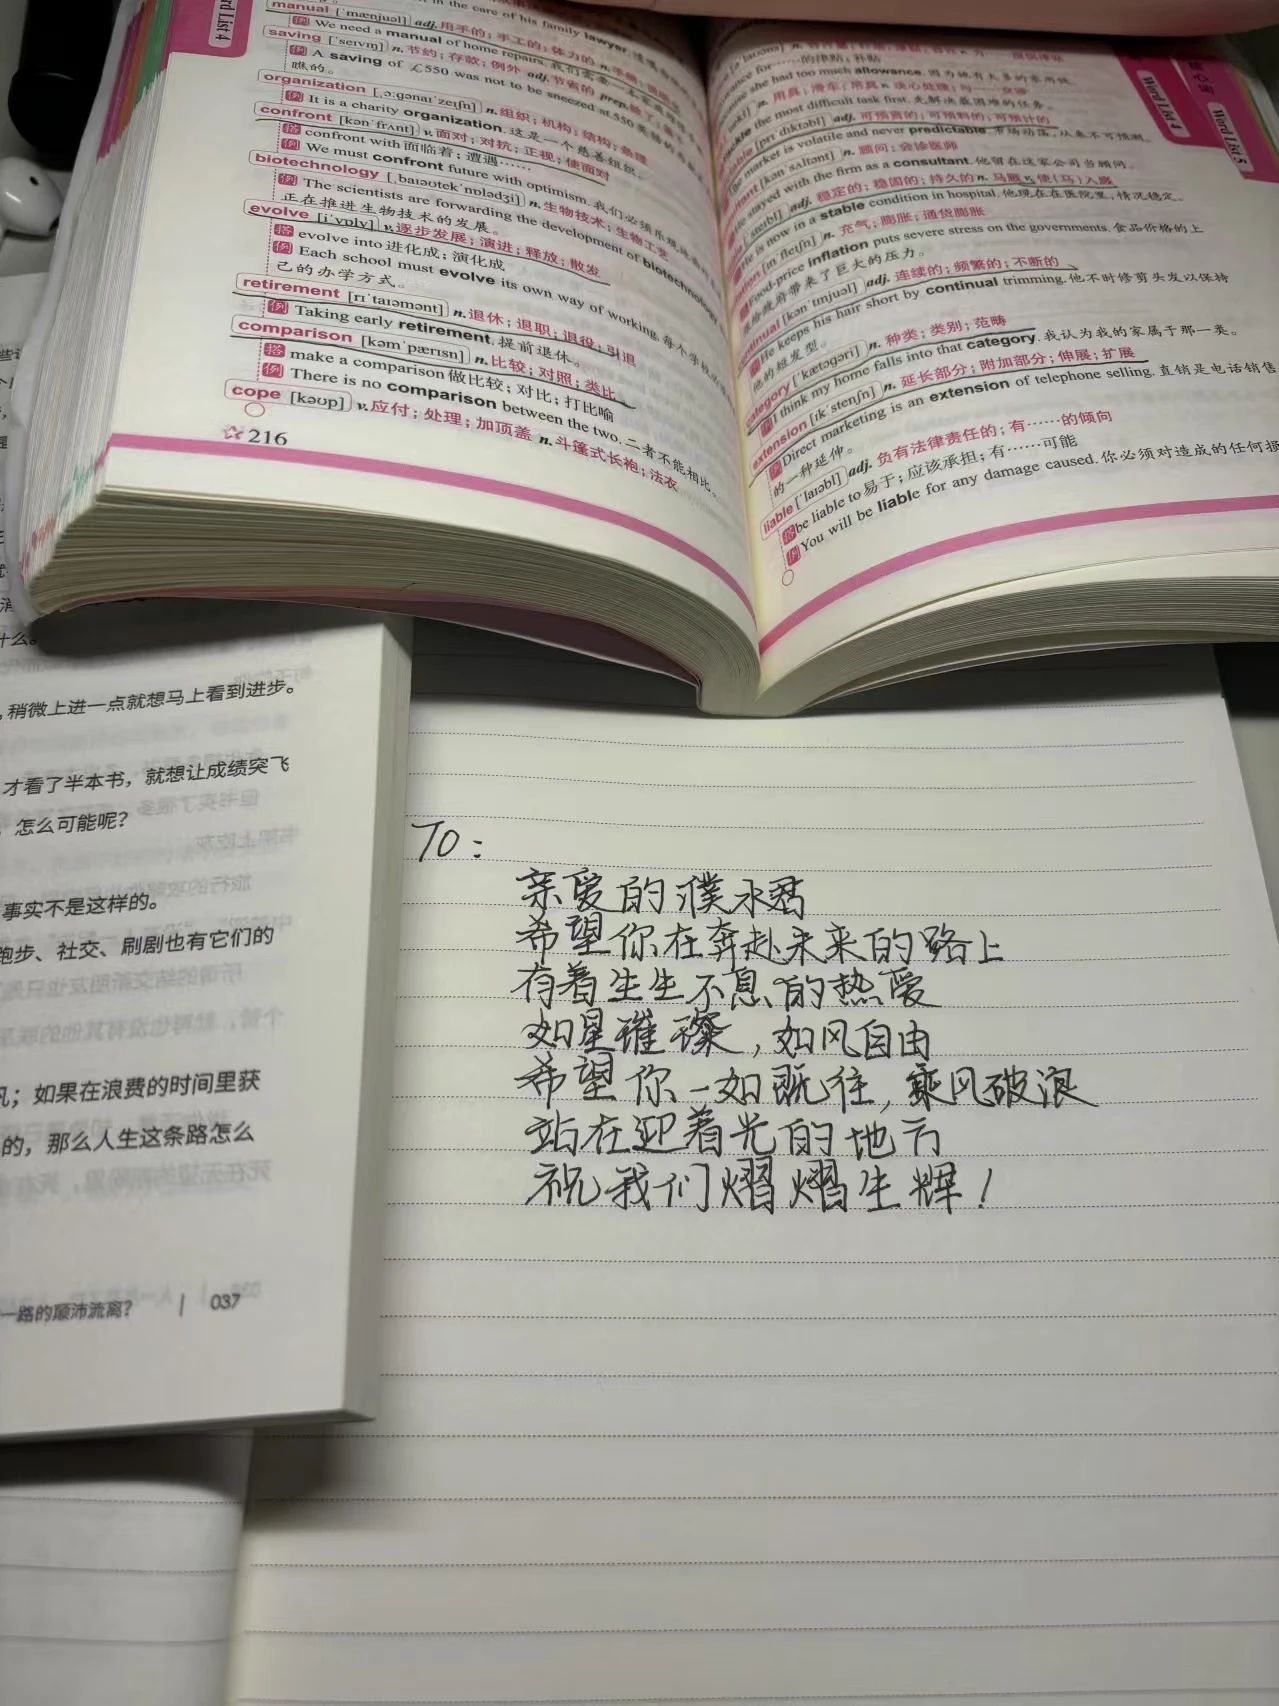 Word List 4
manual [ˈmænjuəl] adj. 用手的；手工的；体力的 n. 手册；说明书
例 We need a manual of home repairs.
saving [ˈseɪvɪŋ] n. 节约；存款；例外 adj. 节省的 prep.
例 A saving of £550 was not to be sneezed at.
瞧的。
organization [ˌɔːɡənaɪˈzeɪʃn] n. 组织；机构；结构；条理
例 It is a charity organization. 这是一个慈善组织。
confront [kənˈfrʌnt] v. 面对；对抗；正视；使面对
搭 confront with 面临着；遭遇……
例 We must confront future with optimism.
biotechnology [ˌbaɪəʊtekˈnɒlədʒi] n. 生物技术；生物工艺
例 The scientists are forwarding the development of biotechnology
正在推进生物技术的发展。
evolve [iˈvɒlv] v. 逐步发展；演进；释放；散发
搭 evolve into 进化成；演化成
例 Each school must evolve its own way of working.
己的办学方式。
retirement [rɪˈtaɪəmənt] n. 退休；退职；退役；引退
例 Taking early retirement. 提前退休。
comparison [kəmˈpærɪsn] n. 比较；对照；类比
搭 make a comparison 做比较；对比；打比喻
例 There is no comparison between the two. 二者不能相比。
cope [kəʊp] v. 应付；处理；加顶盖 n. 斗篷式长袍；法衣
216
核心词
Word List 4
Word List 5
she had too much allowance.
the most difficult task first. 先解决最困难的任务。
adj. 可预言的；可预料的；可预计的
market is volatile and never predictable. 市场动荡，从来不可预测。
[kənˈsʌltənt] n. 顾问；会诊医师
He stayed with the firm as a consultant. 他留在这家公司当顾问。
adj. 稳定的；稳固的；持久的 n. 马厩 v. 使（马）入厩
He is now in a stable condition in hospital. 他现在在医院里，情况稳定。
[ɪnˈfleɪʃn] n. 充气；膨胀；通货膨胀
Food-price inflation puts severe stress on the governments. 食品价格的上
给政府带来了巨大的压力。
continual [kənˈtɪnjuəl] adj. 连续的；频繁的；不断的
He keeps his hair short by continual trimming. 他不时修剪头发以保持
他的短发型。
category [ˈkætəɡəri] n. 种类；类别；范畴
例 I think my home falls into that category. 我认为我的家属于那一类。
extension [ɪkˈstenʃn] n. 延长部分；附加部分；伸展；扩展
例 Direct marketing is an extension of telephone selling. 直销是电话销售
的一种延伸。
liable [ˈlaɪəbl] adj. 负有法律责任的；有……的倾向
搭 be liable to 易于；应该承担；有……可能
例 You will be liable for any damage caused. 你必须对造成的任何损
，稍微上进一点就想马上看到进步。
才看了半本书，就想让成绩突飞
，怎么可能呢？
事实不是这样的。
跑步、社交、刷剧也有它们的
；如果在浪费的时间里获
的，那么人生这条路怎么
一路的颠沛流离？ | 037
TO：
亲爱的濮永君
希望你在奔赴未来的路上
有着生生不息的热爱
如星璀璨，如风自由
希望你一如既往，乘风破浪
站在迎着光的地方
祝我们熠熠生辉！